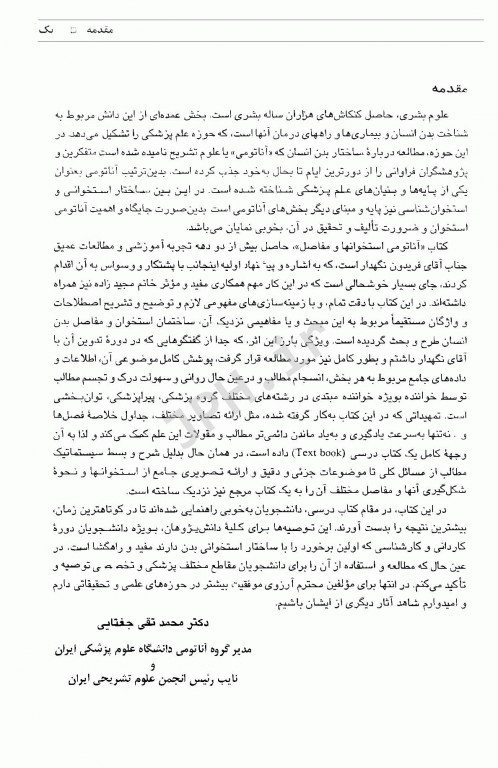 مقدمه □ یک
مقدمه
علوم بشری، حاصل کنکاش‌های هزاران ساله بشری است. بخش عمده‌ای از این دانش مربوط به
شناخت بدن انسان و بیماری‌ها و راههای درمان آنها است، که حوزه علم پزشکی را تشکیل می‌دهد. در
این حوزه، مطالعه دربارهٔ ساختار بدن انسان که «آناتومی» یا علوم تشریح نامیده شده است متفکرین و
پژوهشگران فراوانی را از دورترین ایام تا بحال به‌خود جذب کرده است. بدین‌ترتیب آناتومی به‌عنوان
یکی از پایه‌ها و بنیان‌های علم پزشکی شناخته شده است. در این بین ساختار استخوانی و
استخوان‌شناسی نیز پایه و مبنای دیگر بخش‌های آناتومی است. بدین‌صورت جایگاه و اهمیت آناتومی
استخوان و ضرورت تألیف و تحقیق در آن، بخوبی نمایان می‌باشد.
کتاب «آناتومی استخوانها و مفاصل»، حاصل بیش از دو دهه تجربه آموزشی و مطالعات عمیق
جناب آقای فریدون نگهدار است، که به اشاره و پیشنهاد اولیه اینجانب با پشتکار و وسواس به آن اقدام
کردند، جای بسیار خوشحالی است که در این کار مهم همکاری مفید و مؤثر خانم مجید زاده نیز همراه
داشته‌اند. در این کتاب با دقت تمام، و با زمینه‌سازی‌های مفهومی لازم و توضیح و تشریح اصطلاحات
و واژگان مستقیماً مربوط به این مبحث و یا مفاهیمی نزدیک آن، ساختمان استخوان و مفاصل بدن
انسان طرح و بحث گردیده است. ویژگی بارز این اثر، که جدا از گفتگوهایی که در دورهٔ تدوین آن با
آقای نگهدار داشتم و بطور کامل نیز مورد مطالعه قرار گرفت، پوشش کامل موضوعی آن، اطلاعات و
داده‌های جامع مربوط به هر بخش، انسجام مطالب و درعین حال روانی و سهولت درک و تجسم مطالب
توسط خواننده بویژه خواننده مبتدی در رشته‌های مختلف گروه پزشکی، پیراپزشکی، توان‌بخشی
است. تمهیداتی که در این کتاب به‌کار گرفته شده، مثل ارائه تصاویر مختلف، جداول خلاصهٔ فصل‌ها
و ... نه‌تنها به‌سرعت یادگیری و به‌یاد ماندن دائمی‌تر مطالب و مقولات این علم کمک می‌کند و لذا به آن
وجههٔ کامل یک کتاب درسی (Text book) داده است، در همان حال بدلیل شرح و بسط سیستماتیک
مطالب از مسائل کلی تا موضوعات جزئی و دقیق و ارائه تصویری جامع از استخوانها و نحوهٔ
شکل‌گیری آنها و مفاصل مختلف آن را به یک کتاب مرجع نیز نزدیک ساخته است.
در این کتاب، در مقام کتاب درسی، دانشجویان به‌خوبی راهنمایی شده‌اند تا در کوتاهترین زمان،
بیشترین نتیجه را بدست آورند. این توصیه‌ها برای کلیهٔ دانش‌پژوهان، بویژه دانشجویان دورهٔ
کاردانی و کارشناسی که اولین برخورد را با ساختار استخوانی بدن دارند مفید و راهگشا است، در
عین حال که مطالعه و استفاده از آن را برای دانشجویان مقاطع مختلف پزشکی و تخصصی توصیه و
تأکید می‌کنم. در انتها برای مؤلفین محترم آرزوی موفقیت بیشتر در حوزه‌های علمی و تحقیقاتی دارم
و امیدوارم شاهد آثار دیگری از ایشان باشیم.
دکتر محمد تقی جغتایی
مدیر گروه آناتومی دانشگاه علوم پزشکی ایران
و
نایب رئیس انجمن علوم تشریحی ایران